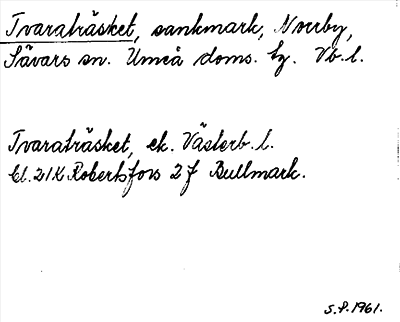 Tvaraträsket, sankmark, Norrby,
Sävars sn. Umeå doms. tg. Vb. l.
Tvaraträsket, ek. Västerb. l.
bl. 21K Robertsfors 2f Bullmark.
S.P. 1961.